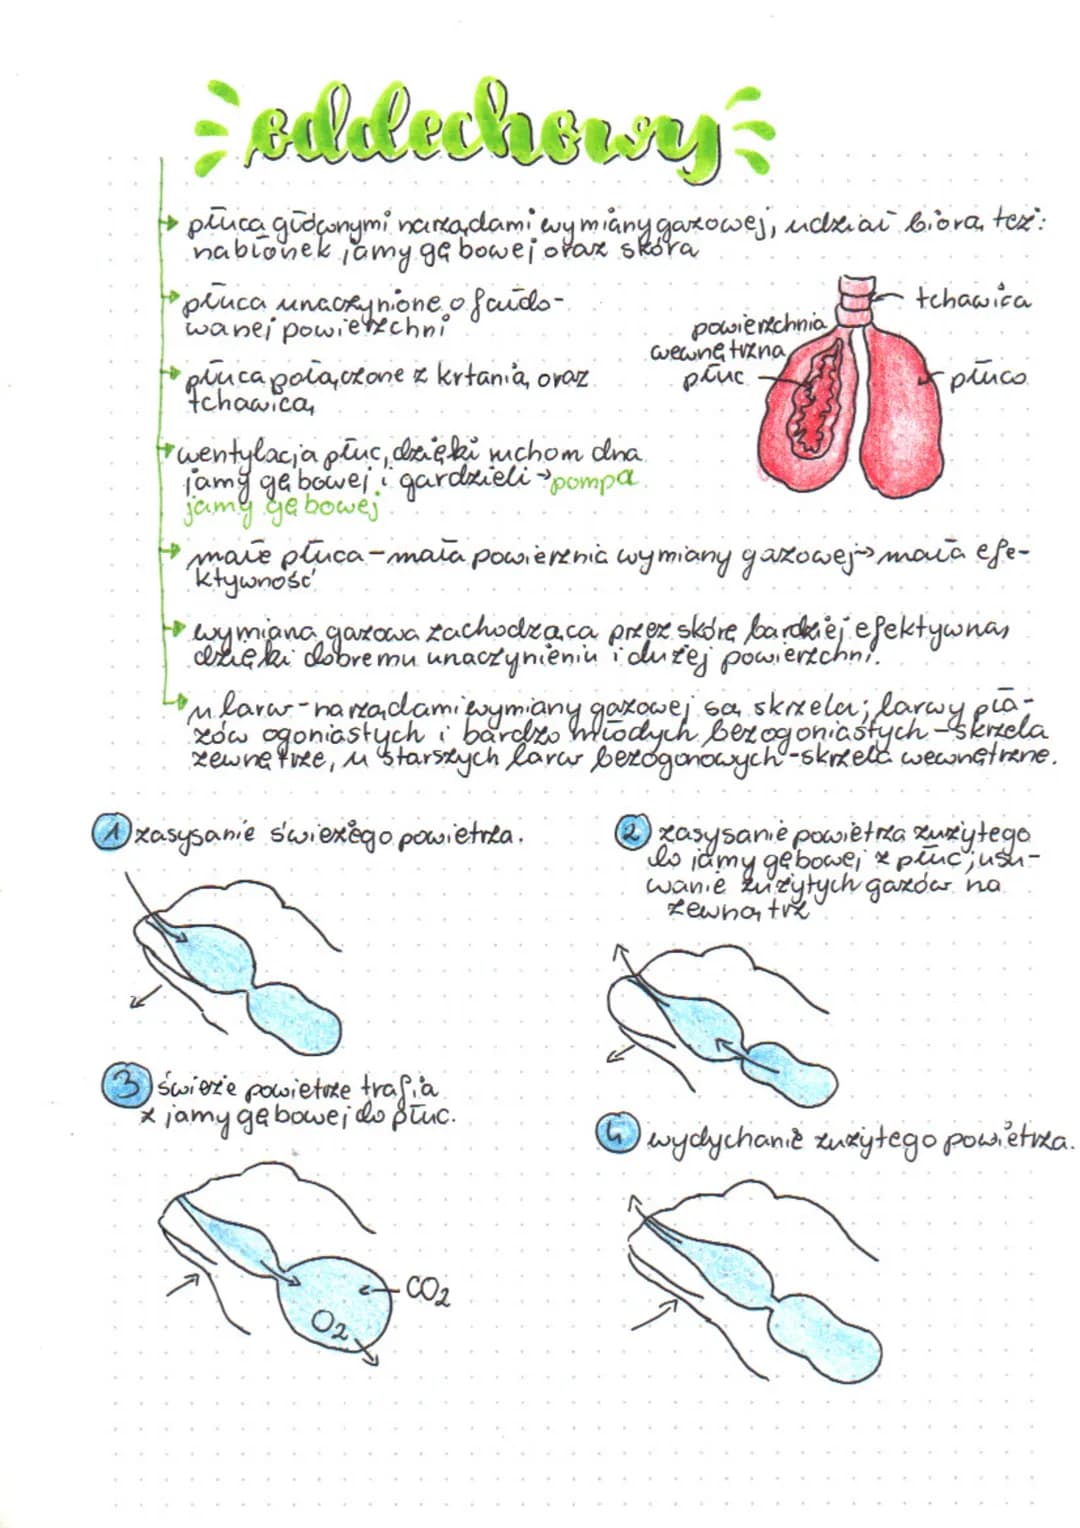 oddechowy
płuca głównymi narządami wymiany gazowej, udział biorą też:
nabłonek jamy gębowej oraz skóra
płuca unaczynione o fałdo-
wanej powierzchni
płuca połączone z krtanią oraz
tchawicą
wentylacja płuc, dzięki ruchom dna
jamy gębowej i gardzieli → pompa
jamy gębowej
małe płuca - mała powierznia wymiany gazowej → mała efe-
ktywność
wymiana gazowa zachodząca przez skórę bardziej efektywna,
dzięki dobremu unaczynieniu i dużej powierzchni.
u larw - narządami wymiany gazowej są skrzela; larwy pła-
zów ogoniastych i bardzo młodych bezogoniastych - skrzela
zewnętrze, u starszych larw bezogonowych - skrzela wewnętrzne.
tchawica
powierzchnia
wewnętrzna
płuc
płuco
1 zasysanie świeżego powietrza.
2 zasysanie powietrza zużytego
do jamy gębowej z płuc; usu-
wanie zużytych gazów na
zewnątrz
3 świeże powietrze trafia
z jamy gębowej do płuc.
CO2
O2
4 wydychanie zużytego powietrza.